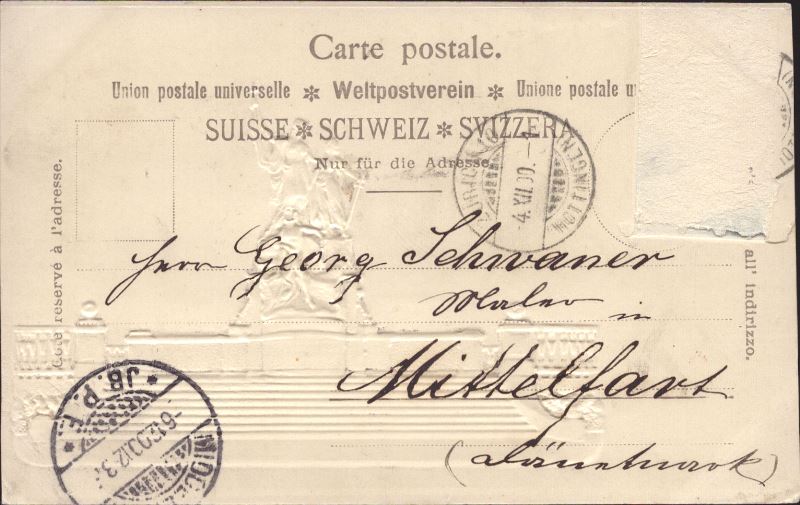 Carte postale.
Union postale universelle ✻ Weltpostverein ✻ Unione postale u
SUISSE ✻ SCHWEIZ ✻ SVIZZERA
Nur für die Adresse.
Côté réservé à l'adresse.
all' indirizzo.
4.XII.00.-1
WOLLISHOFEN
Herr Georg Schwaner
Maler in
Mittelfart
(Dänemark)
* JB. P. E. *
6.12.00.12.3.
MIDDE